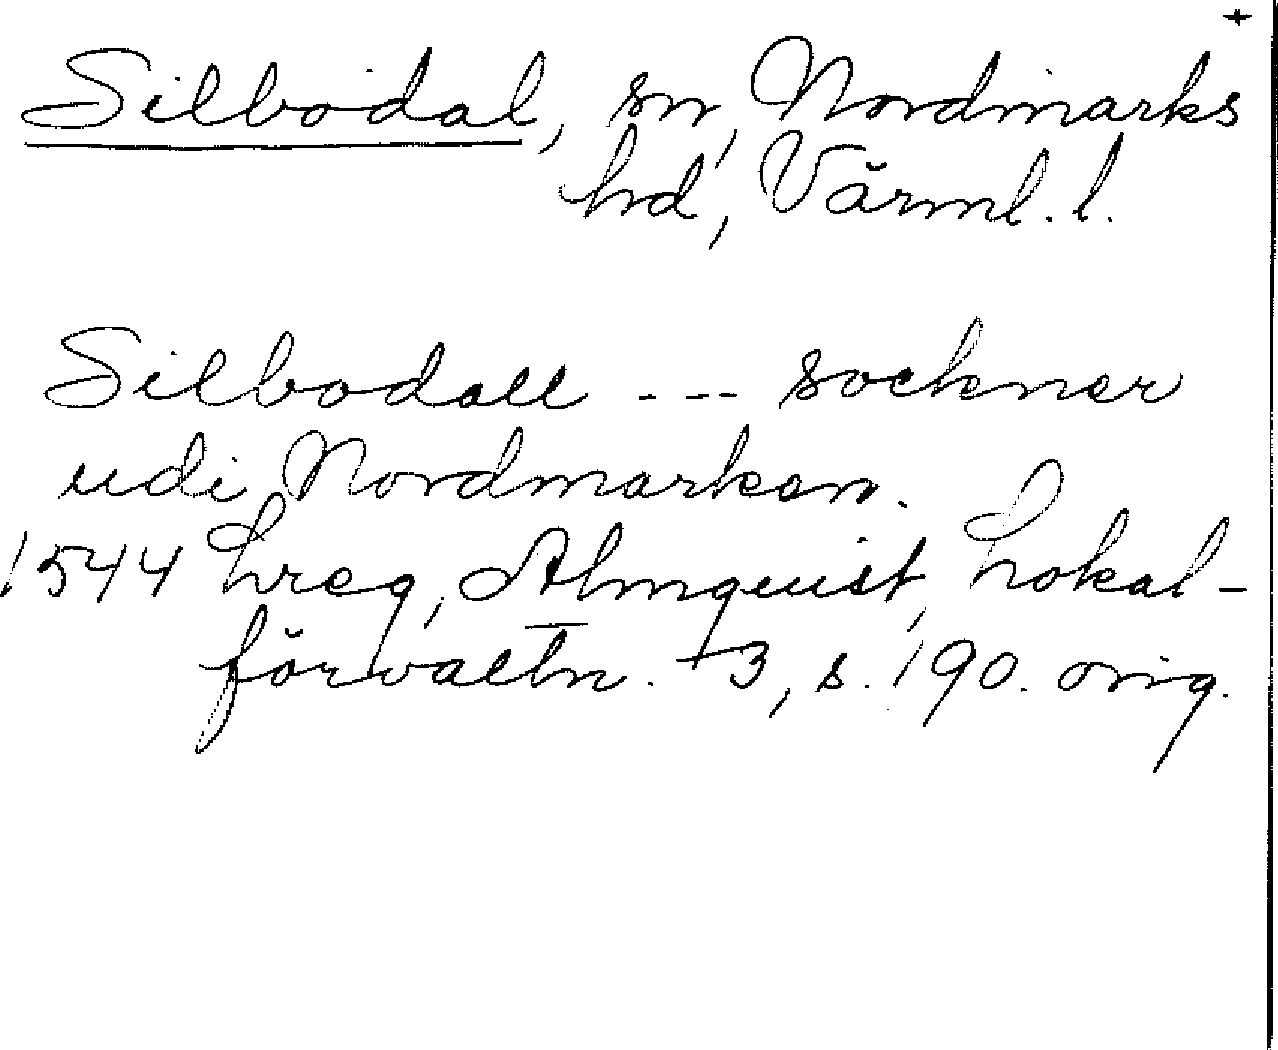 +
Silbodal, sn, Nordmarks
hd, Värml. l.
Silbodall --- sockner
udi Nordmarken.
1544 Lreg, Almquist, Lokal-
förvaltn. I3, s. 190. orig.